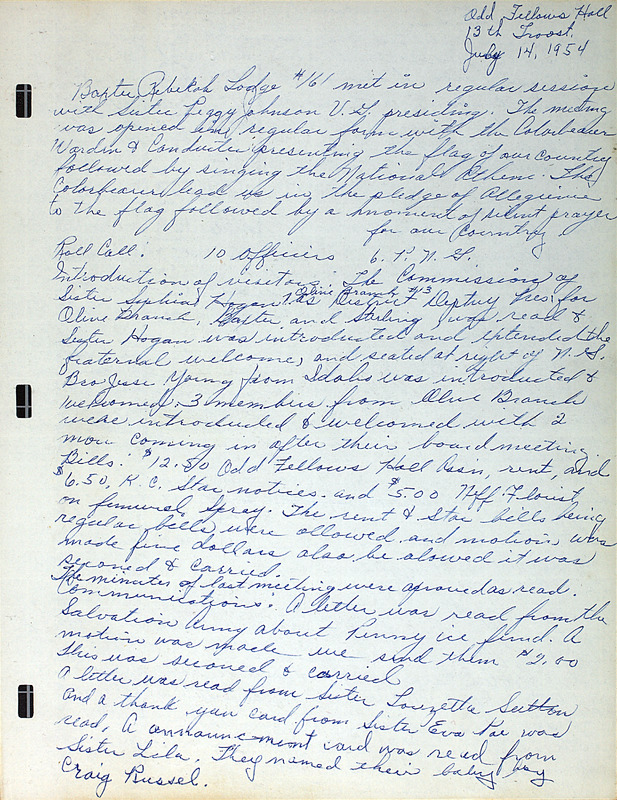 Odd Fellows Hall
13th Troost.
July 14, 1954
Baxter Rebekah Lodge #161 met in regular session
with Sister Peggy Johnson V. G. presiding. The meeting
was opened in regular form with the Colorbearer
Warden & Conductor presenting the flag of our country
followed by singing the National Anthem. The
Colorbearer lead us in the pledge of Allegience
to the flag followed by a moment of silent prayer
for our Country
Roll Call. 10 Officers 6. P. N. G.
Introduction of visitors. The Commission of
Olive Branch #13
Sister Sophia Hogan as District Deptuy Pres. for
Olive Branch, Baxter and Sterling was read &
Sister Hogan was introduced and extended the
fraternal welcome, and seated at right of N. G.
Bro Jesse Young from Idaho was introduced &
welcomed. 3 members from Olive Branch
were introduced & welcomed with 2
more coming in after their board meeting.
Bills. $12.50 Odd Fellows Hall Assn, rent, and
$6.50, K. C. Star notices. and $5.00 Neff Florist,
on funeral spray. The rent & Star bills being
regular bills were allowed and motion was
made five dollars also be alowed it was
seconed & carried.
The minutes of last meeting were aproved as read.
Communications. A letter was read from the
Salvation Army about Penny ice fund. A
motion was made we send them $2.00
this was seconed & carried
A letter was read from Sister Louzetta Sutton
and a thank you card from Sister Eva was
read. A announcement card was read from
Sister Lila. They named their baby boy
Craig Russel.